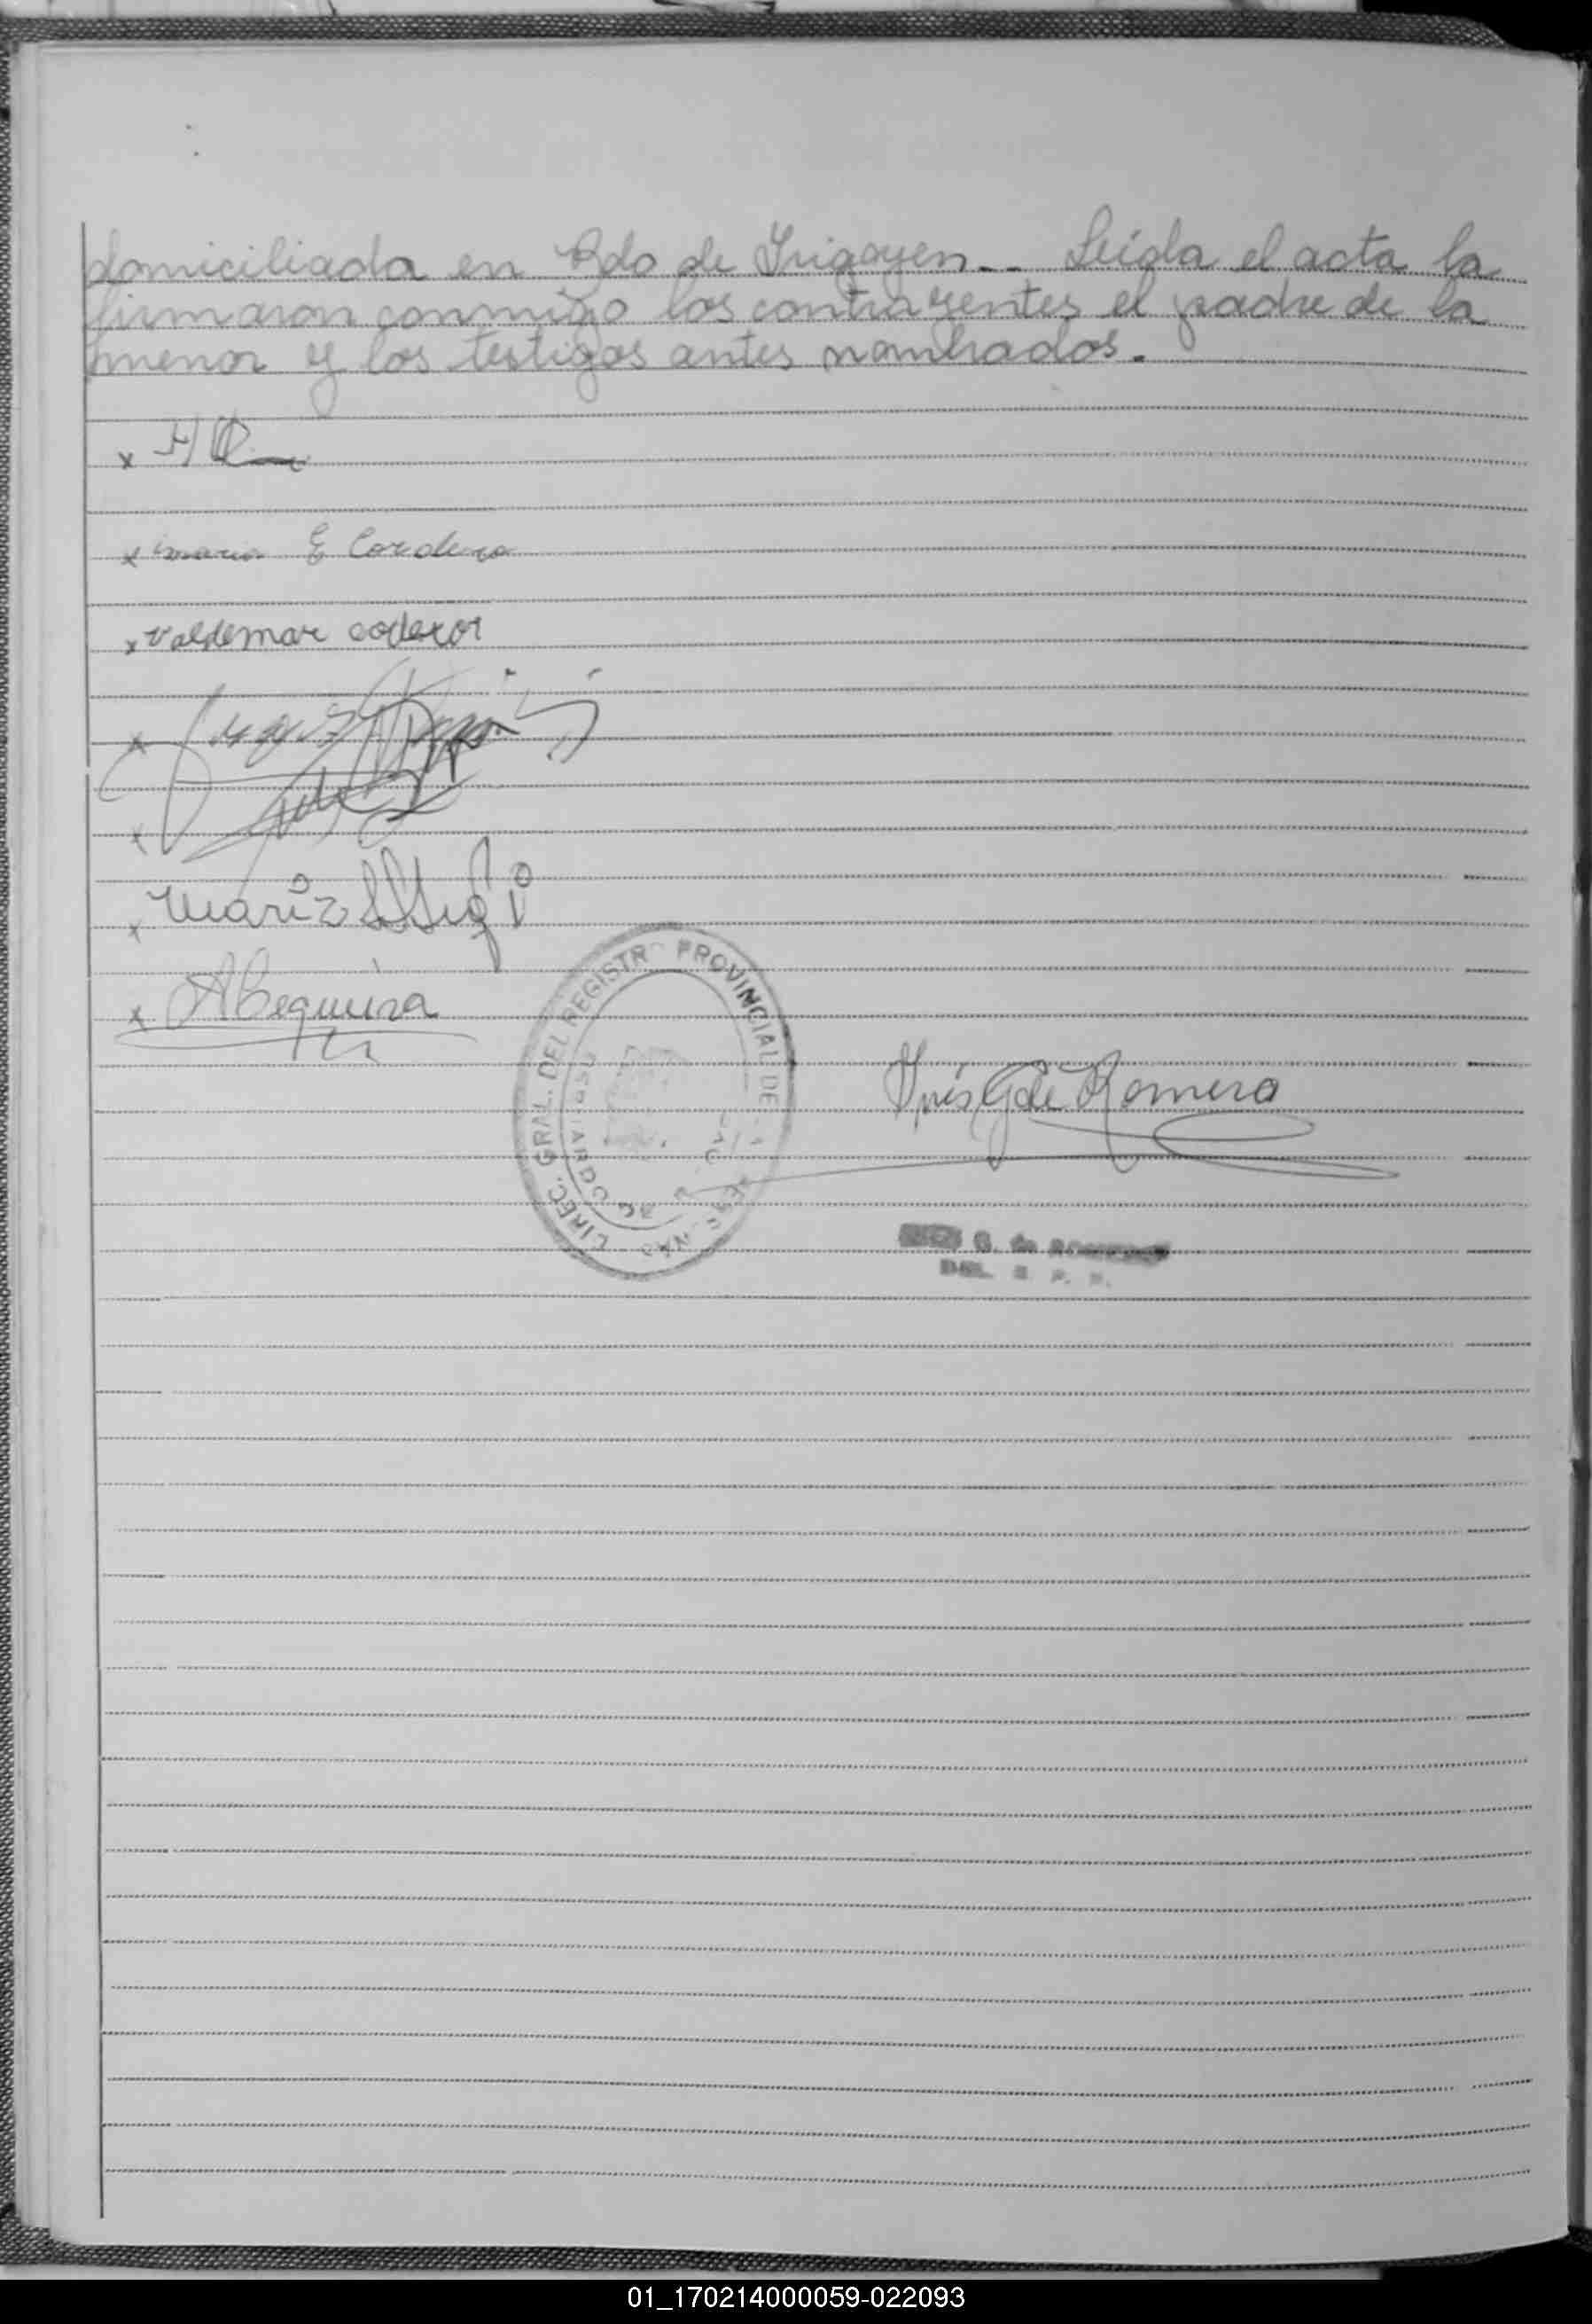 domiciliada en Bdo de Irigoyen.- Leída el acta la
firmaron conmigo los contrayentes el padre de la
menor y los testigos antes nombrados.
x
x Maria E Cordero
x Valdemar
x
x
x Maria
x A Cequeira
DIREC. GRAL. DEL REGISTRO PROVINCIAL DE LAS PERSONAS
Inés G de Romero
G. de ROMERO
DEL. R. P. P.
01_170214000059-022093